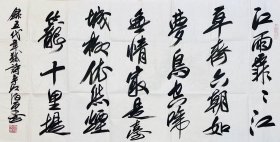 江雨霏霏江
草齊六朝如
夢鳥空啼
無情最是臺
城柳依然煙
籠十里堤
錄五代韋莊詩